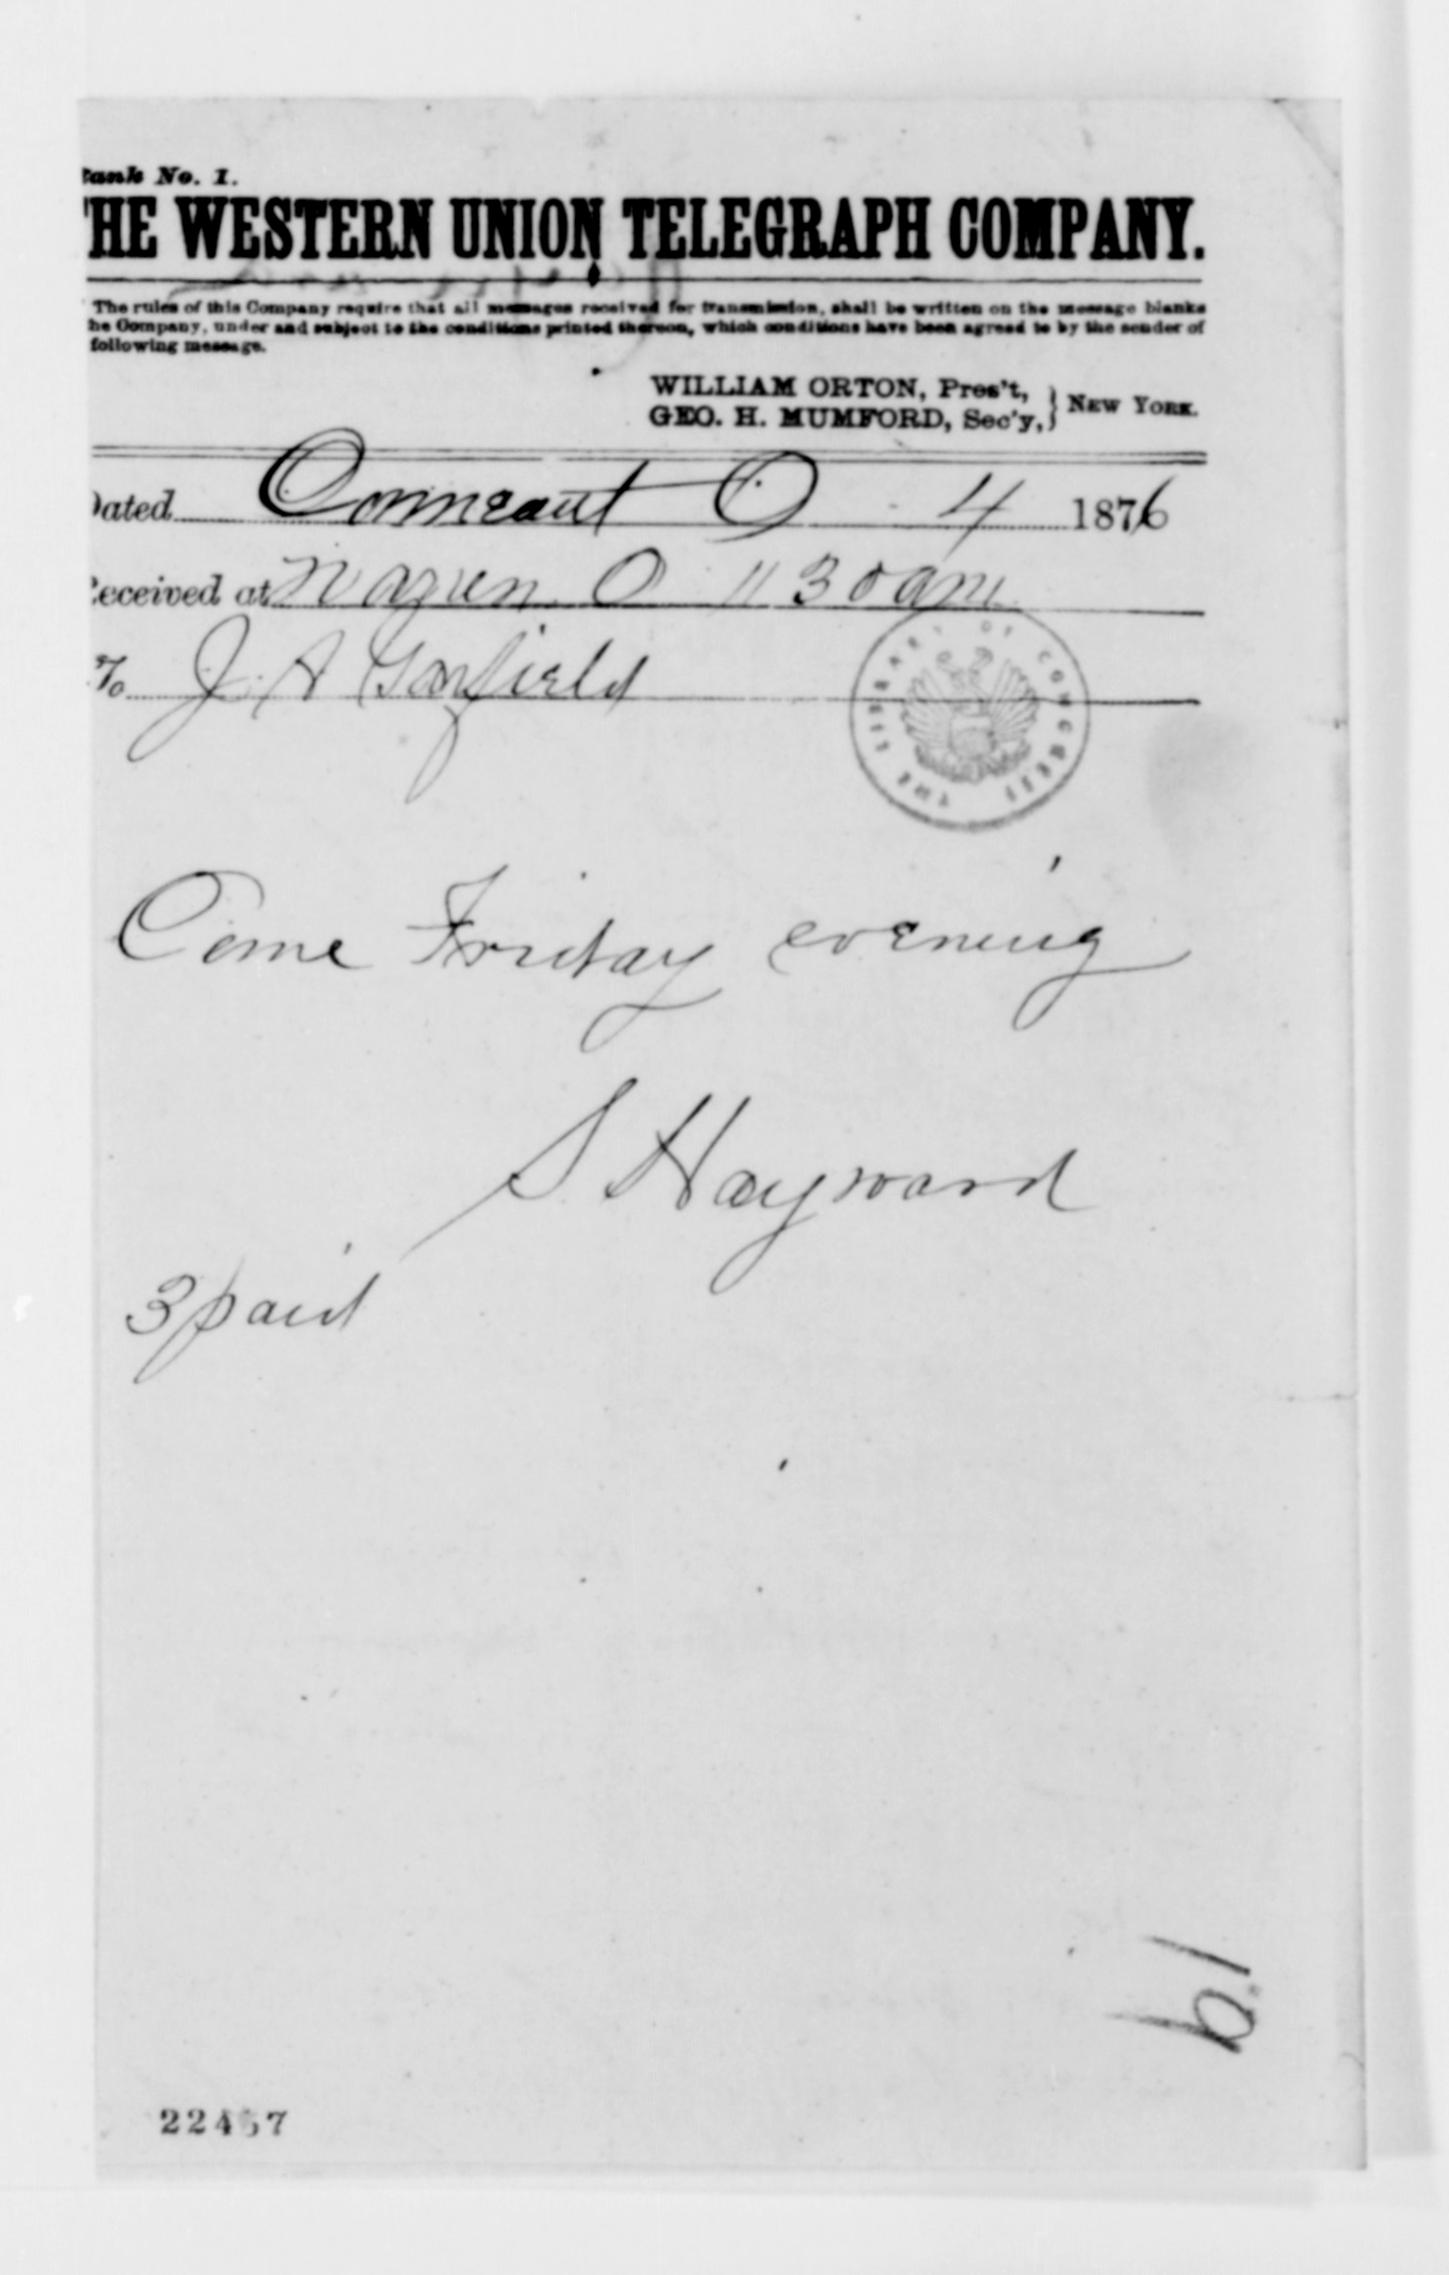 Blank No. 1.
THE WESTERN UNION TELEGRAPH COMPANY.
The rules of this Company require that all messages received for transmission, shall be written on the message blanks
he Company, under and subject to the conditions printed thereon, which conditions have been agreed to by the sender of
following message.
WILLIAM ORTON, Pres't,
GEO. H. MUMFORD, Sec'y, } NEW YORK.
Dated Conneaut O 4 1876
Received at Warren O 11 30 am
To J. A Garfield
THE LIBRARY OF CONGRESS
Come Friday evening
S Hayward
3 paid